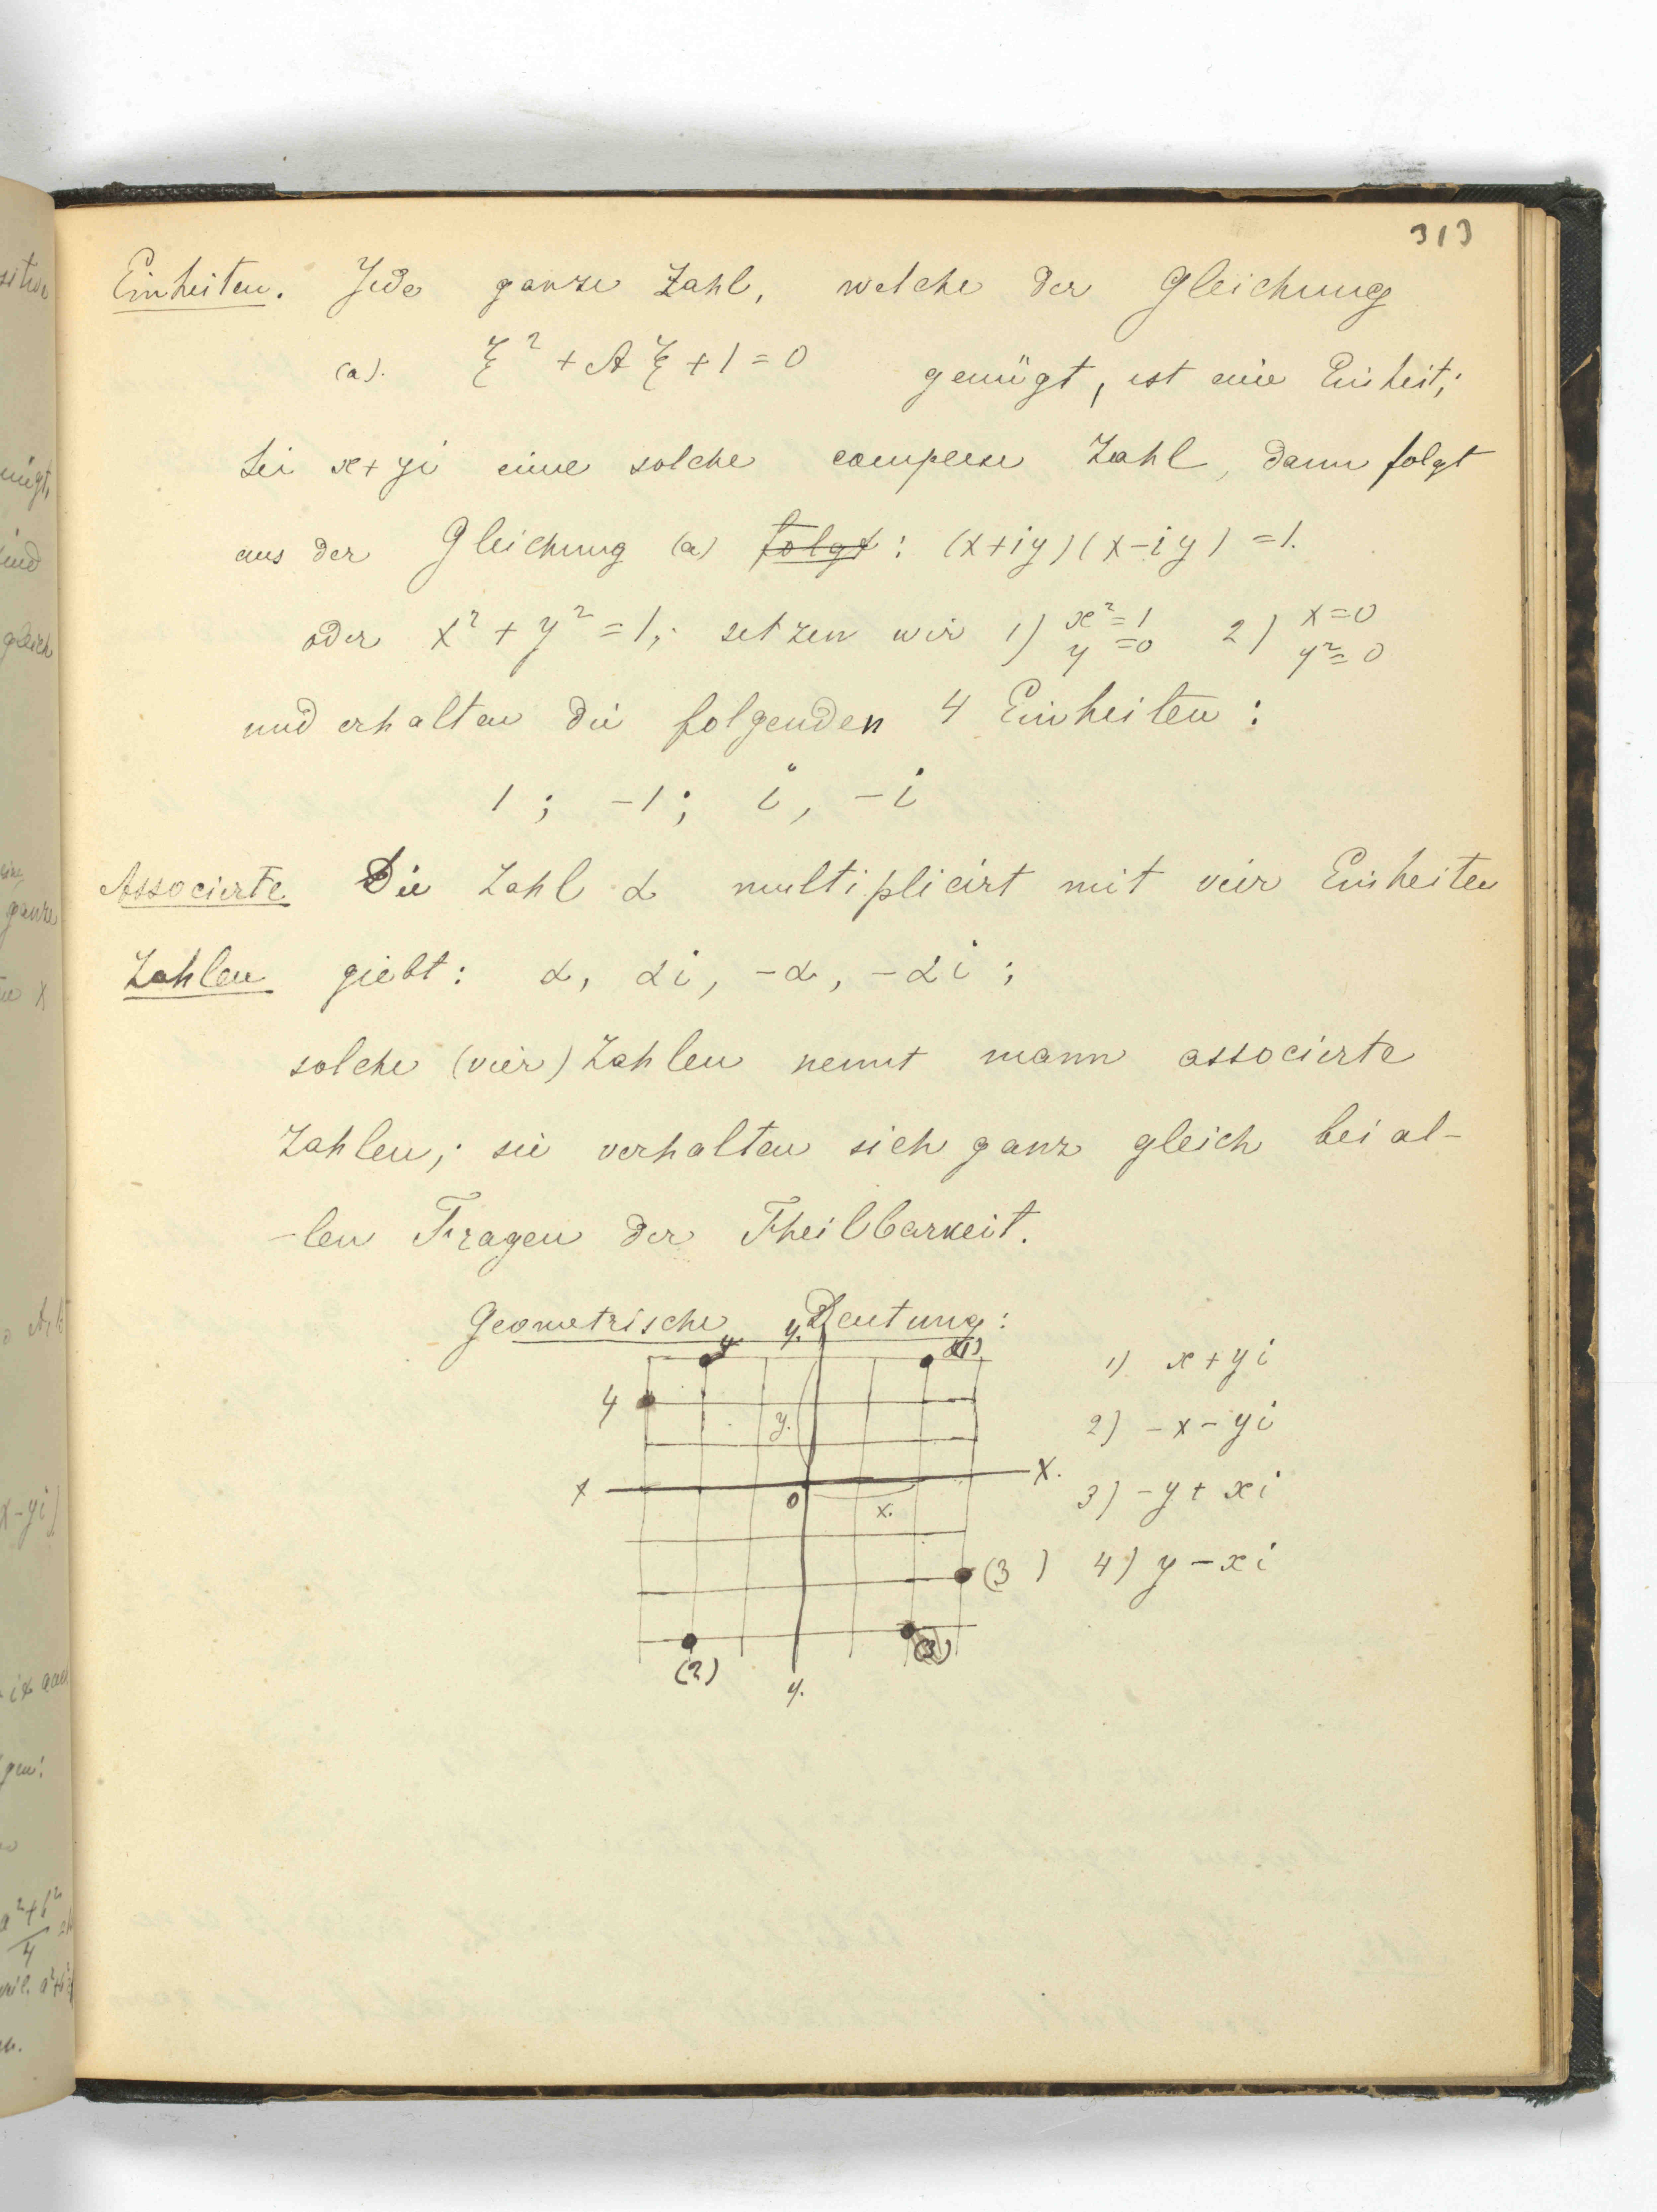 313
Einheiten. Jede ganze Zahl, welche der Gleichung
(a). ξ² + Aξ + 1 = 0 genügt, ist eine Einheit;
Sei x + yi eine solche complexe Zahl, dann folgt
aus der Gleichung (a) folgt : (x+iy)(x-iy) = 1.
oder x² + y² = 1; setzen wir 1) x²=1 y=0 2) x=0 y²=0
und erhalten die folgenden 4 Einheiten :
1 ; -1 ; i, -i
Associerte Die Zahl α multiplicirt mit vier Einheiten
Zahlen giebt : α, αi, -α, -αi ;
solche (vier) Zahlen nennt mann associerte
Zahlen; sie verhalten sich ganz gleich bei al-
-len Fragen der Theilbarkeit.
Geometrische Deutung :
y.
(1)
1) x + yi
4
y.
2) - x - yi
x
X.
0
x.
3) - y + xi
(3)
4) y - xi
(2)
(3)
y.